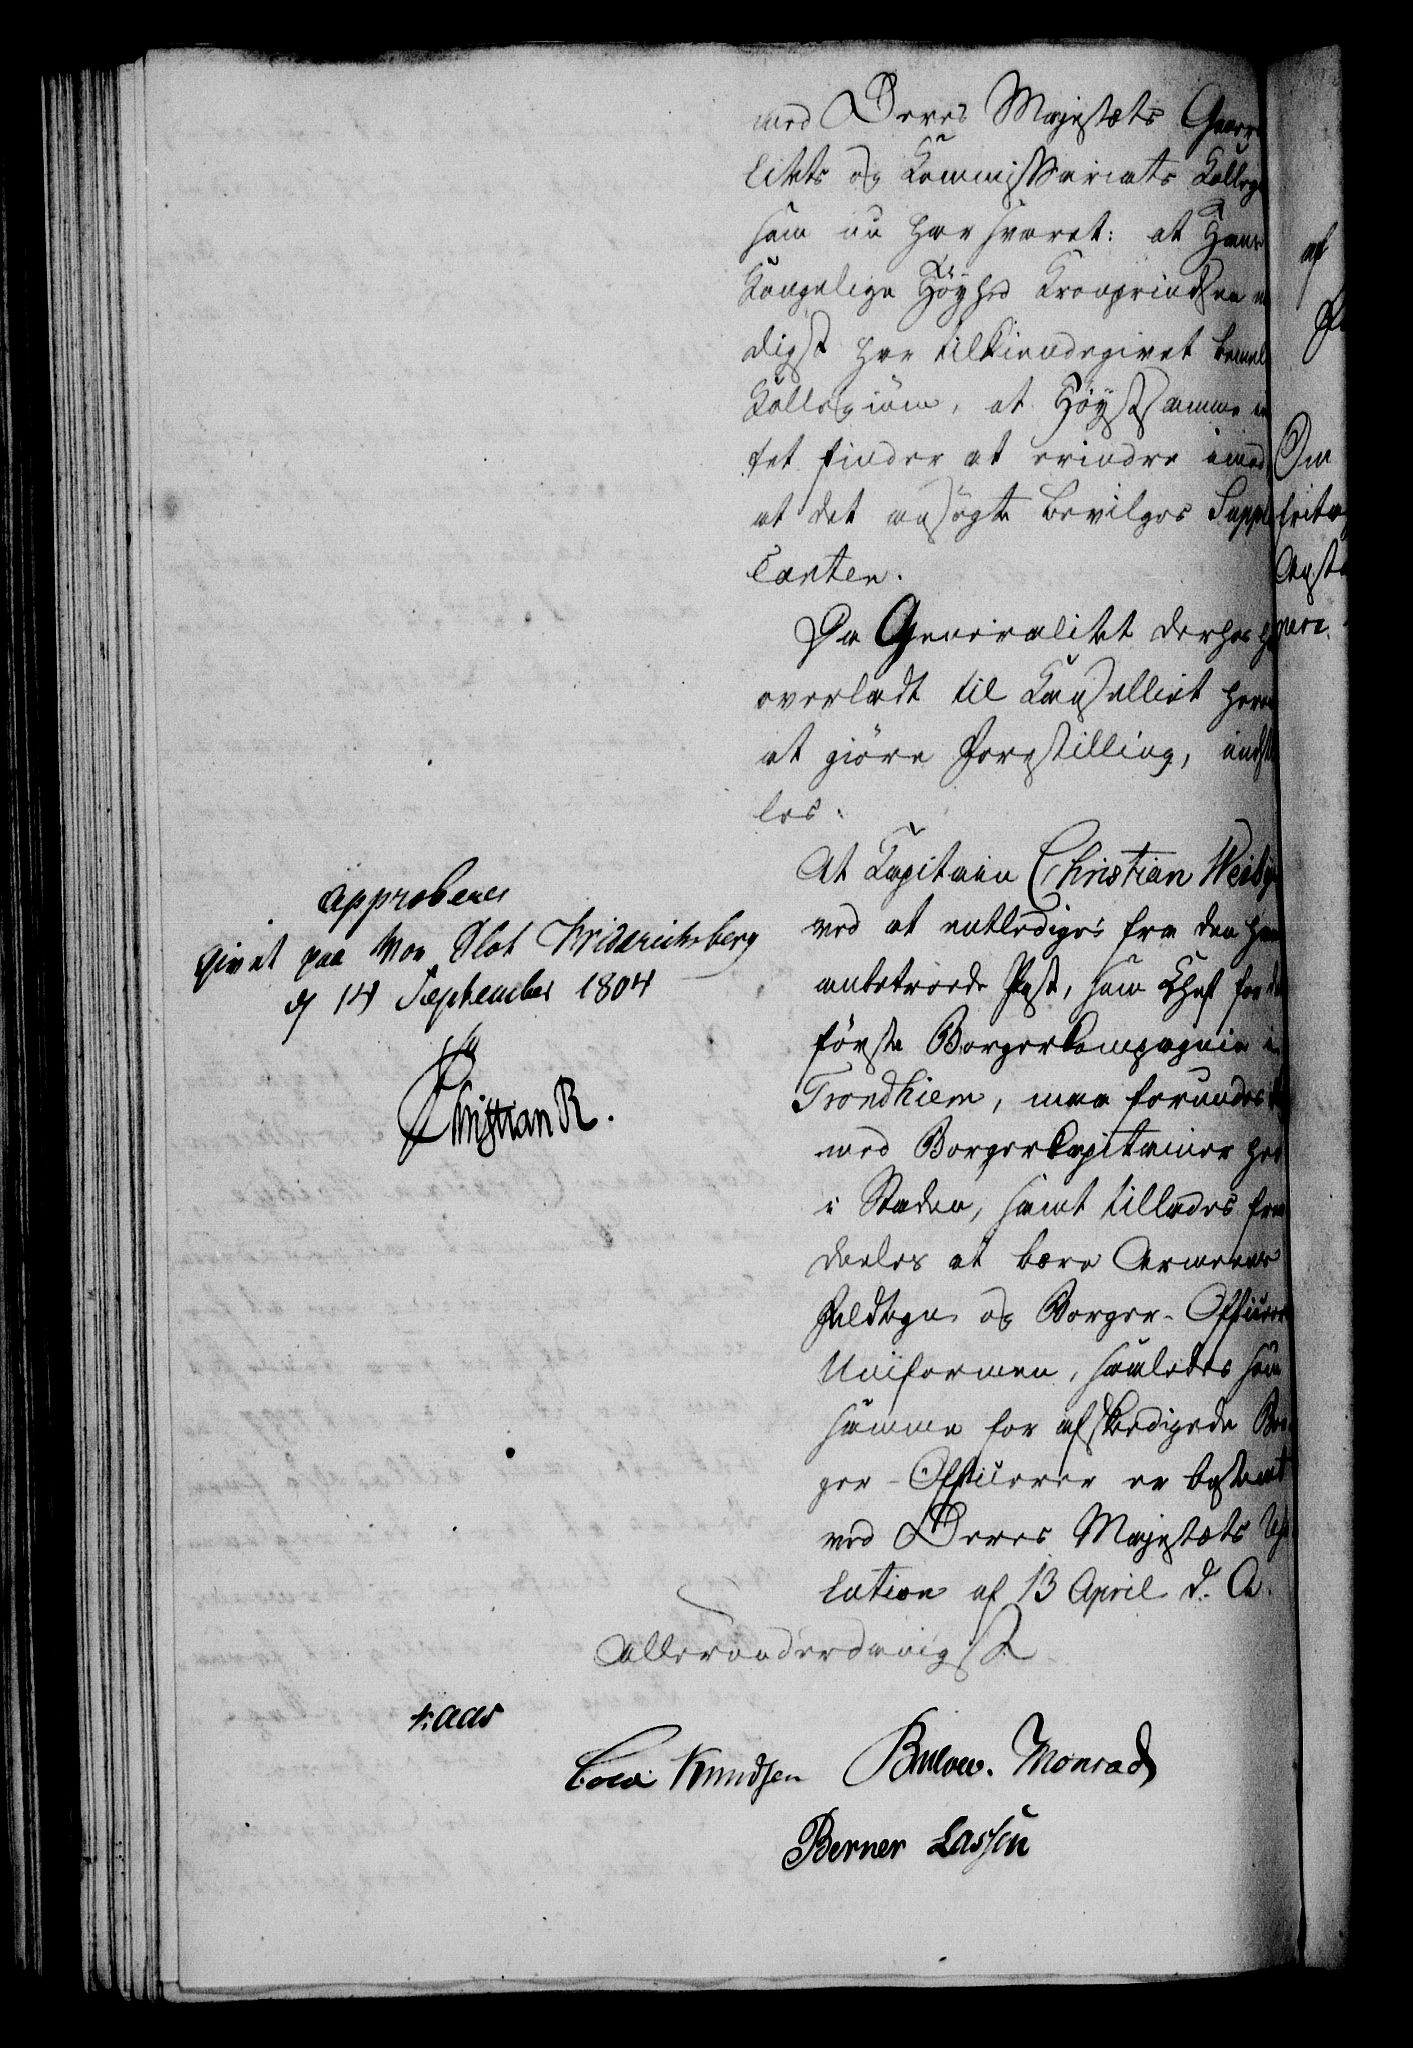 med Deres Majestæts Genera
litets og Kommissariats Kolleg
som nu har svaret: at Hans
Kongelige Höyhed Kronprindsen n
digst har tilkiendegivet bemel
Kollegium, at Höystsamme in
tet finder at erindre imod
at det ansögte bevilges Suppl
canten.
Da Generalitet derhos h
overladt til Kancelliet her
at giöre Forestilling, indst
les:
At Capitain Christian Weiby
ved at entlediges fra den ham
anbetroede Post, som Chef for d
förste Borgerkompagnie i
Trondhiem, maa forundes
med Borgerkapitainer her
i Staden, samt tillades frem
deeles at bære Armeens
Feldtegn og Borger-Officeer
Uniformen, saaledes som
samme for afskedigede Bor
ger-Officerer er bestemt
ved Deres Majestæts
lution af 13 April d. A.
Allerunderdanigst
Approberes
Givet paa Vor Slot Friderichsberg
d 14 September 1804
Christian R.
Kaas
Cold Knudsen Bülow. Monrad
Berner Lassen
af
Om
frita
Anst